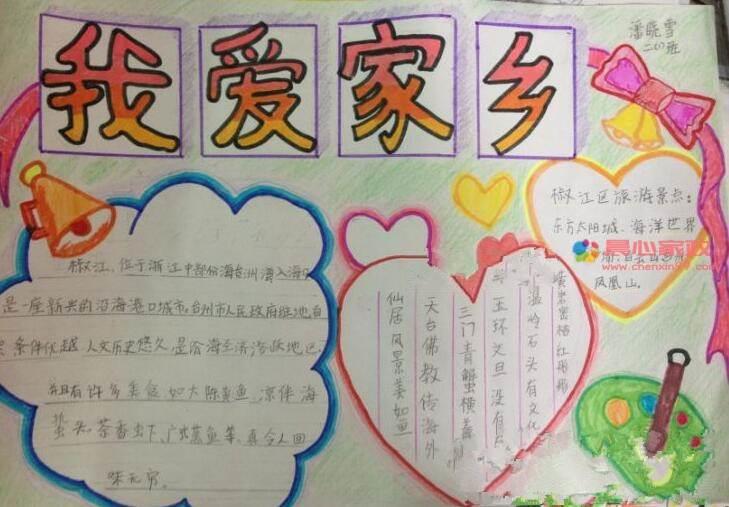 我爱家乡
潘晓雪
二(1)班
椒江，位于浙江中部份海台州湾入海口
是一座新兴的沿海港口城市，台州市人民政府驻地自
条件优越，人文历史悠久，是沿海经济活跃地区，
并且有许多美食，如大陈黄鱼，凉伴海
蜇头，茶香虾，鱼等，真令人回
味无穷。
椒江区旅游景点：
东方太阳城、海洋世界
凤凰山。
晨心家政
www.chenxin
黄岩蜜桔红彤彤
温岭石头有文化
玉环文旦没有
三门青蟹横着
天台佛教传海外
仙居风景美如画